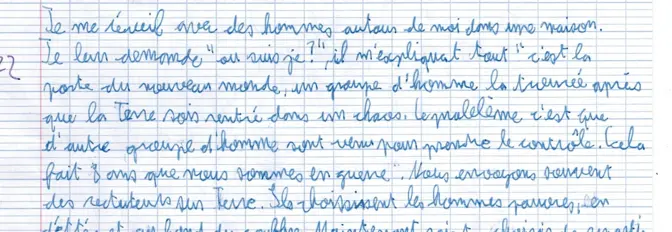 Je me réveil avec des hommes autour de moi dans une maison.
Je leur demande "ou suis je?", il m'expliquat tout "c'est la
22
porte du nouveau monde, un groupe d'homme la trouvée après
que la Terre sois rentré dans un chaos. Le problème c'est que
d'autre groupe d'homme sont venu pour prendre le contrôle. Cela
fait 8 ans que nous sommes en guerre". Nous envoyons souvent
des recruteurs sur Terre. Ils choisissent les hommes pauvres, en